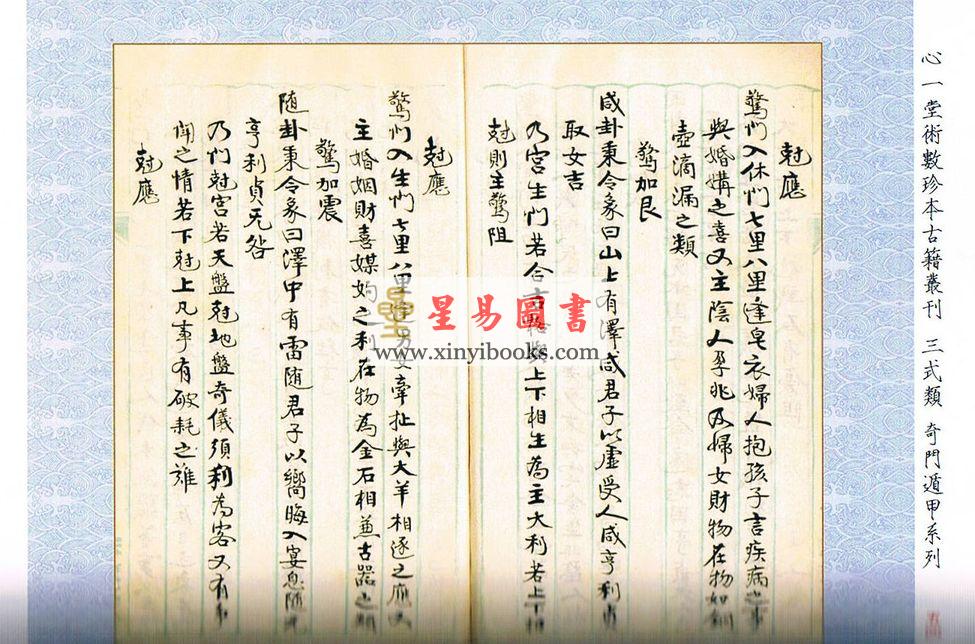 心一堂術數珍本古籍叢刊 三式類 奇門遁甲系列
尅應
驚门入休门七里八里逢皂衣婦人抱孩子言疾病之事
與婚媾之喜又主陰人孕兆及婦女財物在物如銅
壺滴漏之類
驚加艮
咸卦秉令象曰山上有澤咸君子以虛受人咸亨利貞
取女吉
乃宮生门若合吉格與上下相生為主大利若上下相
尅則主驚阻
尅應
驚门入生门七里八里逢男女牽扯與大羊相逐之應又
主婚姻財喜媒妁之利在物為金石相兼古器之類
驚加震
隨卦秉令象曰澤中有雷隨君子以嚮晦入宴息隨
亨利貞无咎
乃门尅宮若天盤尅地盤奇儀須利為客又有事
之情若下尅上凡事有破耗之
尅應
星易圖書
www.xinyibooks.com